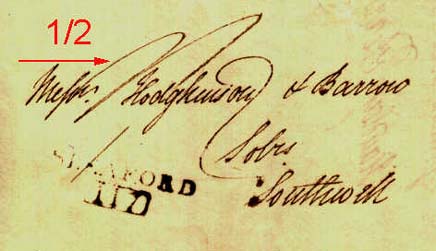 1/2
Messrs. Hodgkinson & Barrow
Solrs
Southwell
SLEAFORD